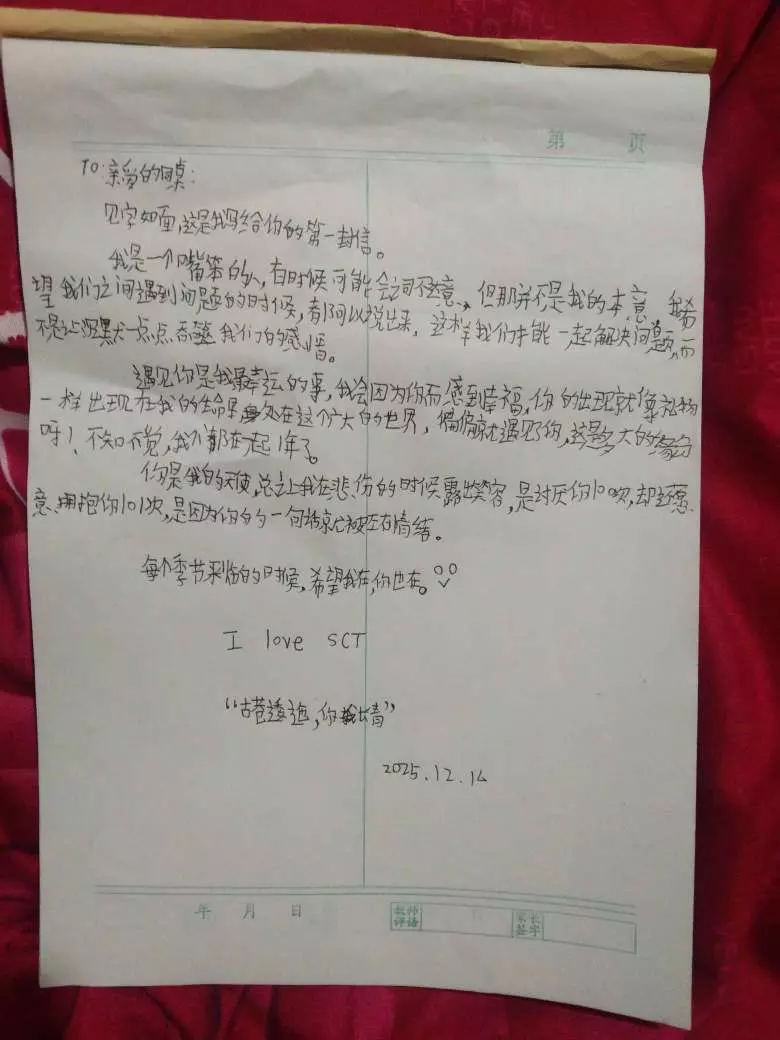 第 页
TO:亲爱的同桌:
见字如面,这是我写给你的第一封信。
我是一个嘴笨的人,有时候可能会词不达意,但那并不是我的本意 我希
望我们之间遇到问题的时候,都可以说出来,这样我们才能一起解决问题,而
不是让沉默一点点吞噬我们的感情。
遇见你是我最幸运的事,我会因为你而感到幸福,你的出现就像礼物
一样出现在我的生命里 处在这个广大的世界,偏偏就遇见了你,这是多大的缘分
呀!不知不觉,我们都在一起1年了。
你是我的天使,总让我在悲伤的时候露出笑容,是讨厌你100次,却还愿
意拥抱你101次,是因为你的一句话就被左右情绪。
每个季节来临的时候,希望我在,你也在。
I love SCT
“古巷逶迤,你我长青”
2025.12.14
年 月 日
教师
评语
家长
签字